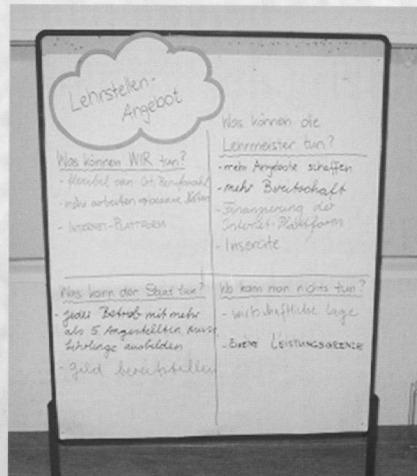 Lehrstellen-
Angebot
Was können WIR tun?
- flexibel sein Ort, Berufswahl
- mehr arbeiten
- INTERNET-PLATTFORM
Was können die
Lehrmeister tun?
- mehr Angebote schaffen
- mehr Breitschaft
- Finanzierung der
Internet-Plattform
- Inserate
Was kann der Staat tun?
- jeder Betrieb mit mehr
als 5 Angestellten muss
Lehrlinge ausbilden
- Geld bereitstellen
Wo kann man nichts tun?
- wirtschaftliche Lage
- LEISTUNGSGRENZE